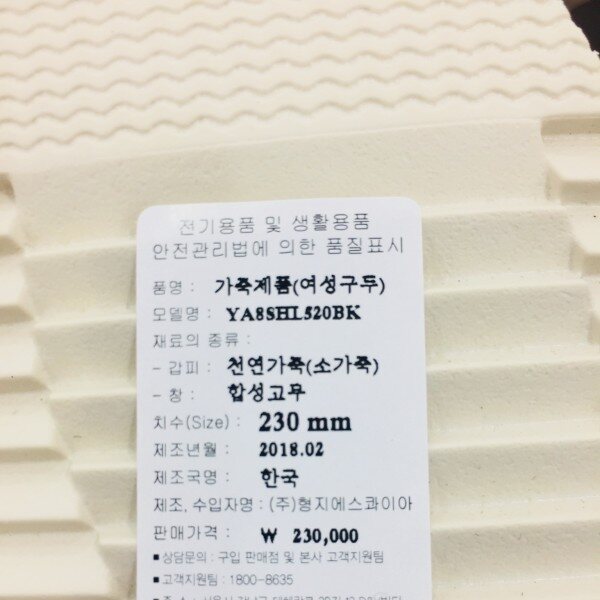 전기용품 및 생활용품
안전관리법에 의한 품질표시
품명 : 가죽제품(여성구두)
모델명 : YA8SHL520BK
재료의 종류 :
- 갑피 : 천연가죽(소가죽)
- 창 : 합성고무
치수(Size) : 230 mm
제조년월 : 2018.02
제조국명 : 한국
제조, 수입자명 : (주)형지에스콰이아
판매가격 : ₩ 230,000
■ 상담문의 : 구입 판매점 및 본사 고객지원팀
■ 고객지원팀 : 1800-8635